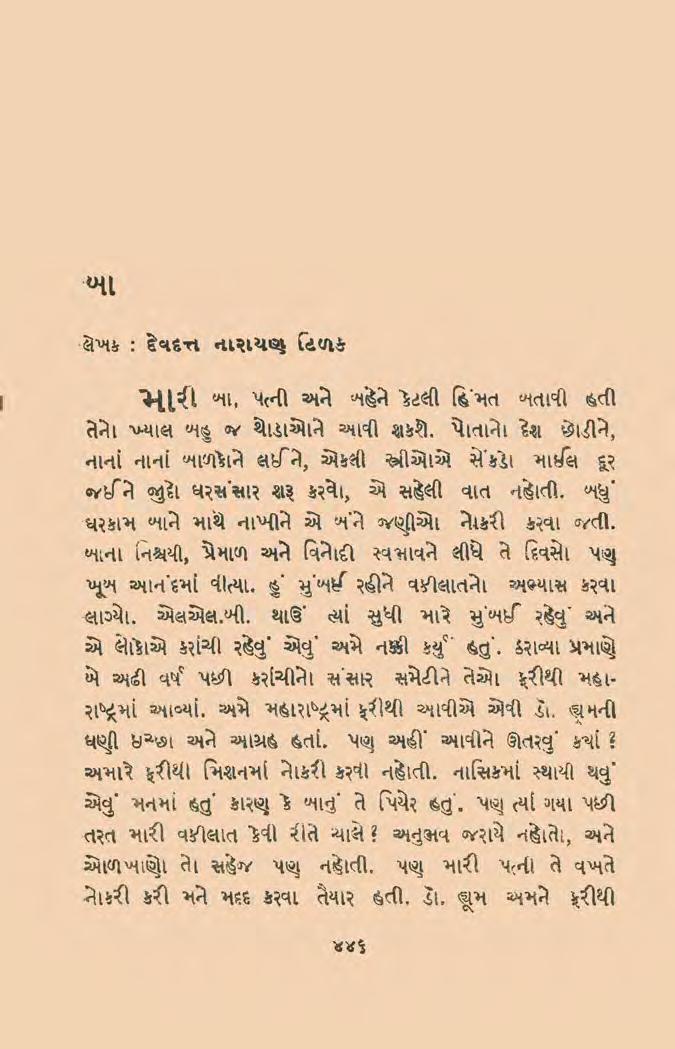 બા
લેખક : દેવદત્ત નારાયણ ટિળક
મારી બા, પત્ની અને બહેને કેટલી હિંમત બતાવી હતી
તેનો ખ્યાલ બહુ જ થોડાઓને આવી શકશે. પોતાનો દેશ છોડીને,
નાનાં નાનાં બાળકોને લઈને, એકલી સ્ત્રીઓએ સેંકડો માઈલ દૂર
જઈને જુદો ઘરસંસાર શરૂ કરવો, એ સહેલી વાત નહોતી. બધું
ઘરકામ બાને માથે નાખીને એ બંને જણીઓ નોકરી કરવા જતી.
બાના નિશ્ચયી, પ્રેમાળ અને વિનોદી સ્વભાવને લીધે તે દિવસો પણ
ખૂબ આનંદમાં વીત્યા. હું મુંબઈ રહીને વકીલાતનો અભ્યાસ કરવા
લાગ્યો. એલએલ.બી. થાઉં ત્યાં સુધી મારે મુંબઈ રહેવું અને
એ લોકોએ કરાંચી રહેવું એવું અમે નક્કી કર્યું હતું. ઠરાવ્યા પ્રમાણે
બે અઢી વર્ષ પછી કરાંચીનો સંસાર સમેટીને તેઓ ફરીથી મહા-
રાષ્ટ્રમાં આવ્યાં. અમે મહારાષ્ટ્રમાં ફરીથી આવીએ એવી ડૉ. હ્યૂમની
ઘણી ઇચ્છા અને આગ્રહ હતાં. પણ અહીં આવીને ઊતરવું ક્યાં ?
અમારે ફરીથી મિશનમાં નોકરી કરવી નહોતી. નાસિકમાં સ્થાયી થવું
એવું મનમાં હતું કારણ કે બાનું તે પિયેર હતું. પણ ત્યાં ગયા પછી
તરત મારી વકીલાત કેવી રીતે ચાલે ? અનુભવ જરાયે નહોતો, અને
ઓળખાણો તો સહેજ પણ નહોતી. પણ મારી પત્ની તે વખતે
નોકરી કરી મને મદદ કરવા તૈયાર હતી. ડૉ. હ્યૂમ અમને ફરીથી
૪૪૬